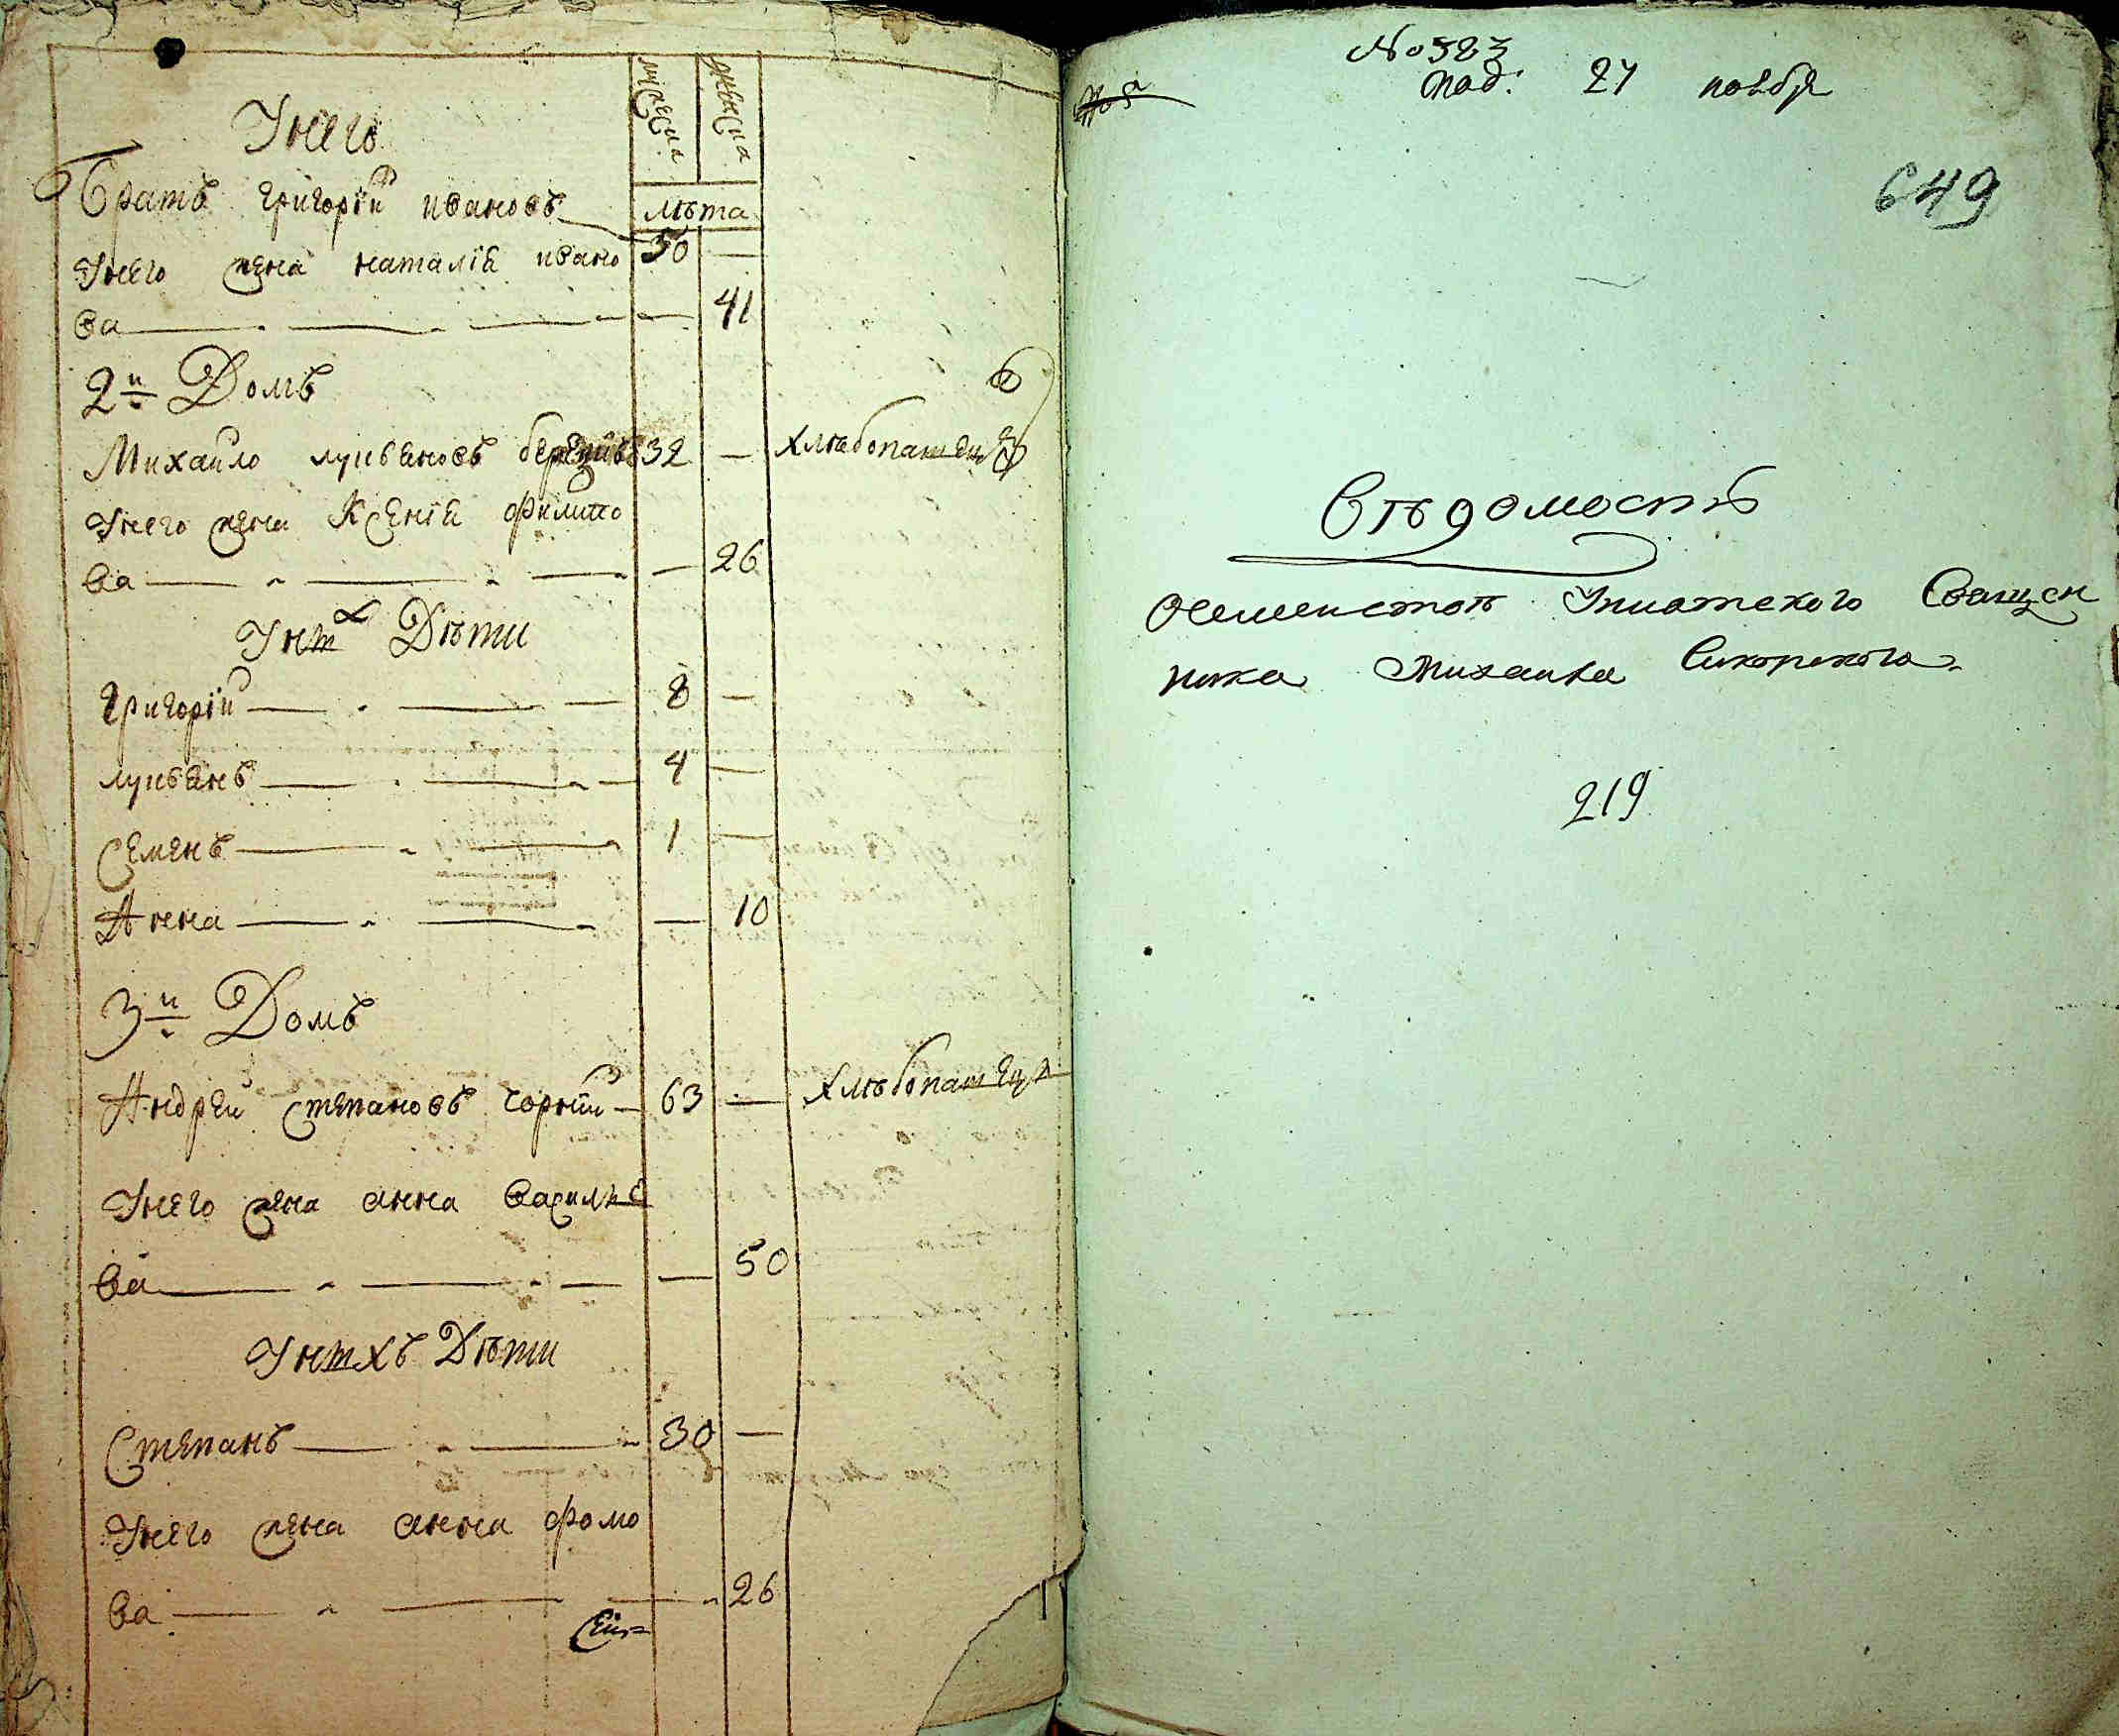 мужеска
женска
У него
Братъ григорїй ивановъ
лѣта
50 —
У него жена наталїя ивано
ва — — — — 41
2й Домъ
Михайло лукьяновъ 32 — хлѣбопашецъ
У него жена Ксенїя филипо
ва — — — — 26
У них Дѣти
григорїй — — — 8 —
лукьянъ — — — 4 —
Семенъ — — 1 —
Анна — — — 10
3й Домъ
Андрей степановъ чорный — 63 — хлѣбопашецъ
У него жена анна василье
ва — — — — 50
У нихъ Дѣти
Степанъ — — 30 —
У него жена анна фомо
ва — — — 26
№ 523
под: 27 ноября
649
Вѣдомость
о семействѣ Униатского Священ
ника Михаила Сикорского
219